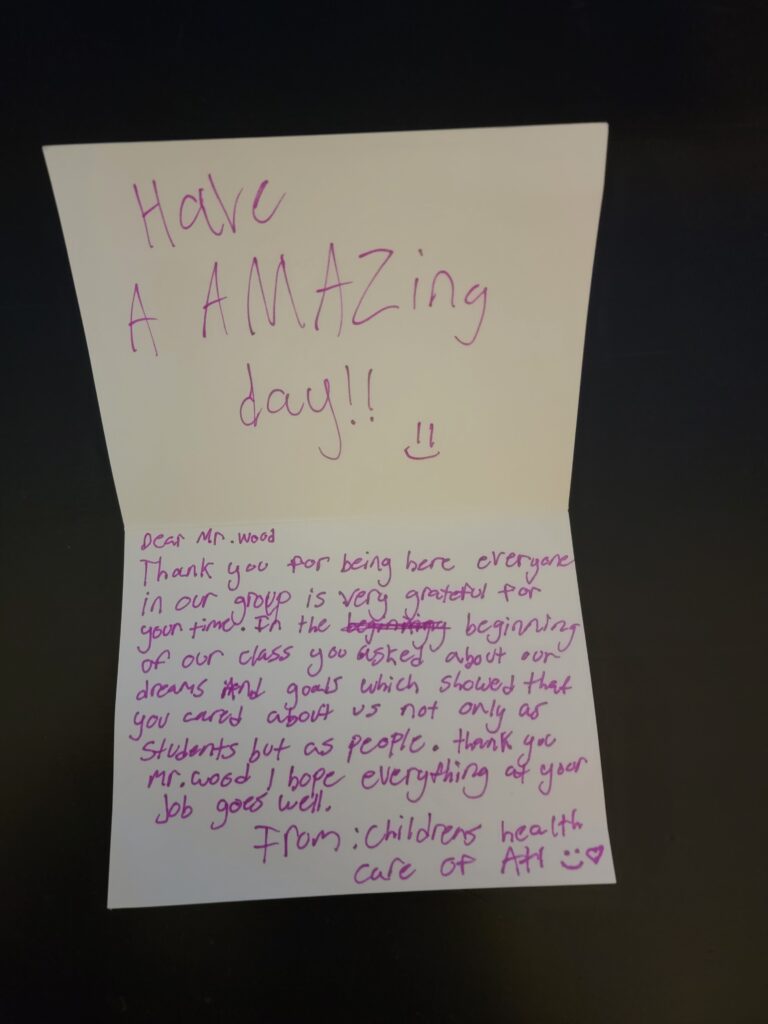 Have
A AMAZing
day!!
Dear Mr. Wood
Thank you for being here everyone
in our group is very grateful for
your time. In the beginning beginning
of our class you asked about our
dreams And goals which showed that
you cared about us not only as
students but as people. Thank you
Mr. Wood I hope everything at your
Job goes well.
From: Childrens health
care of Atl